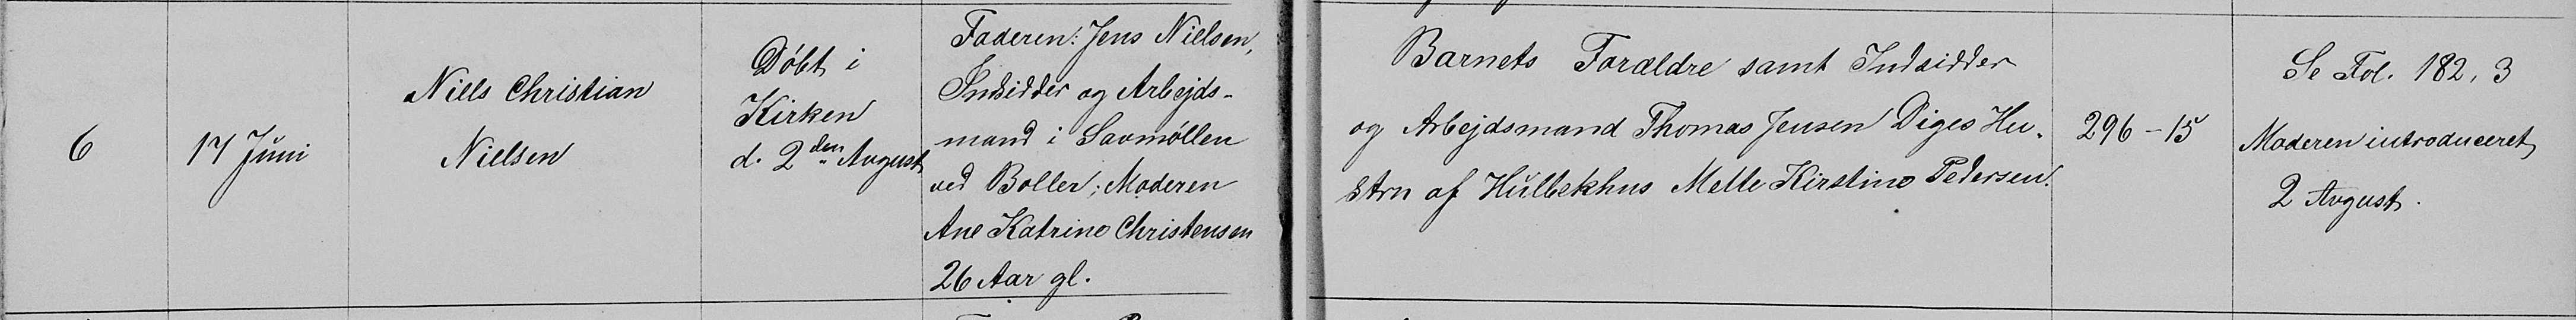 6
17 Juni
Niels Christian
Nielsen
Døbt i
Kirken
d. 2den August
Faderen: Jens Nielsen,
Indsidder og Arbejds-
mand i Savmøllen
ved Boller; Moderen
Ane Katrine Christensen
26 Aar gl.
Barnets Forældre samt Indsidder
og Arbejdsmand Thomas Jensen Diges Hu-
stru af Hulbekhus Mette Kirstine Pedersen.
296-15
Se Fol. 182, 3
Moderen introduceret
2 August.